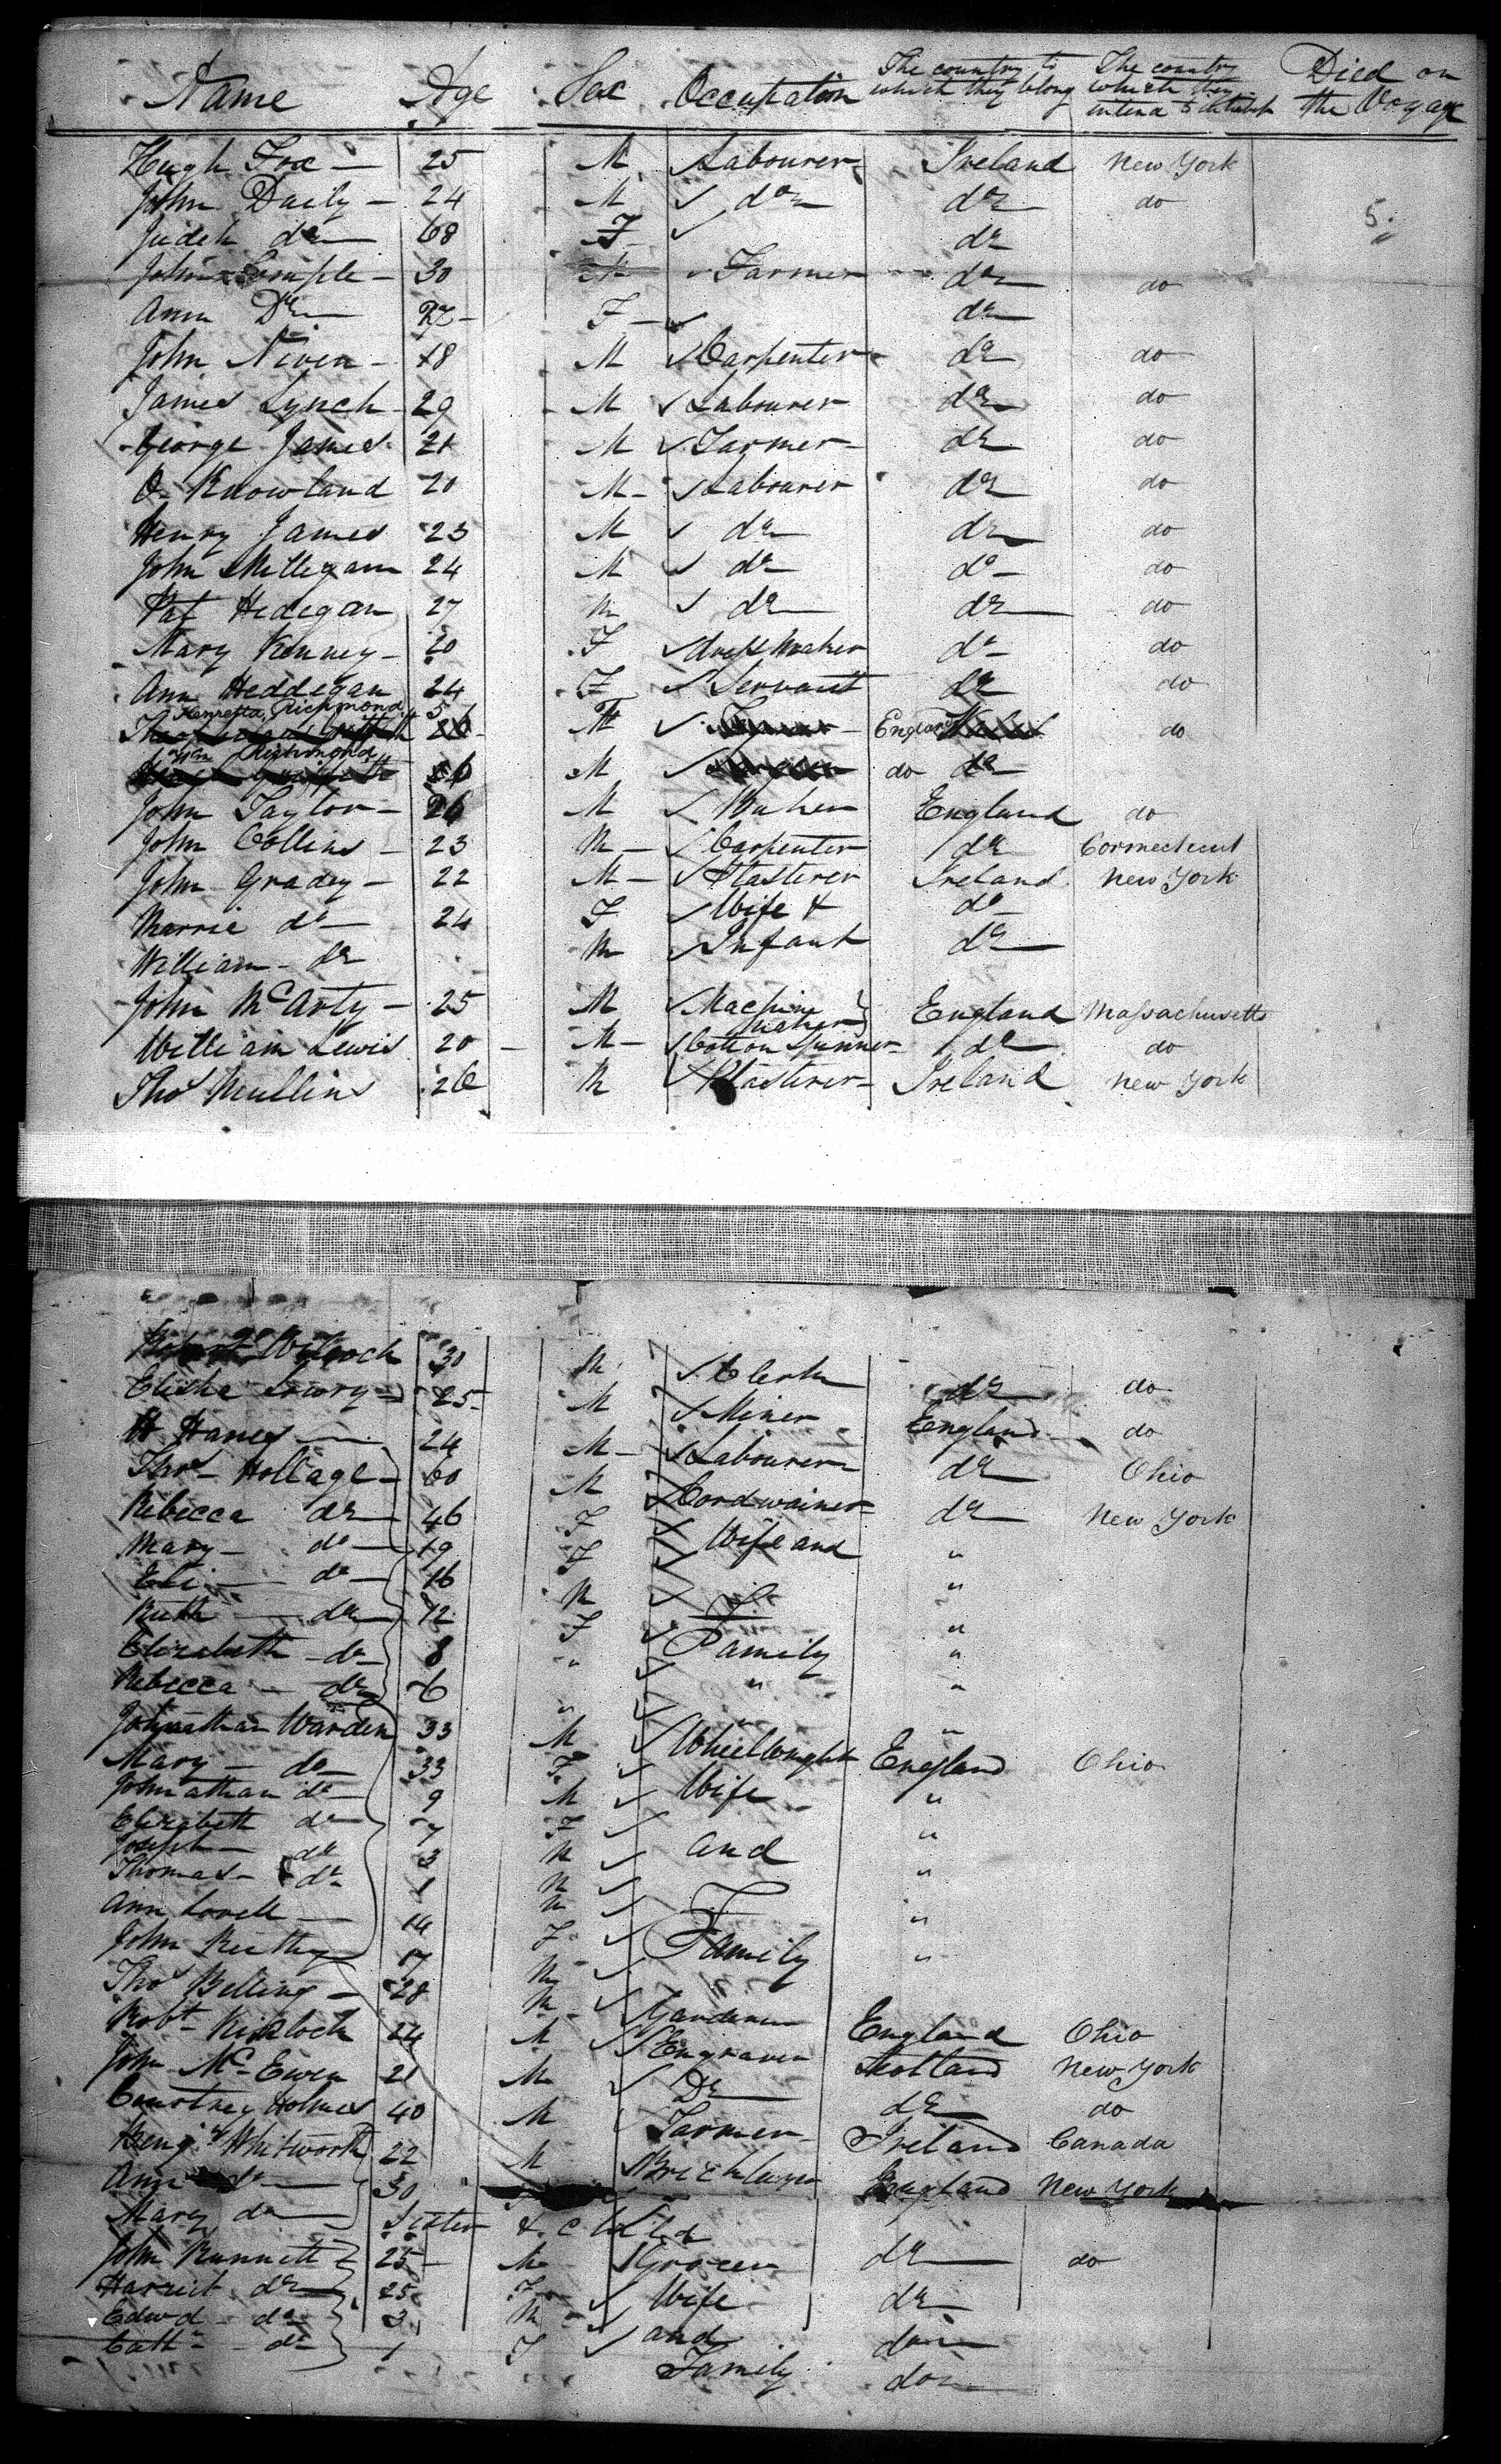 Name Age Sex Occupation The country to which they belong The country which they intend to inhabit Died on the Voyage
Hugh Fox 25 M Labourer Ireland New York
John Daily 24 M do do do
Judith do 68 F do 5
John 30 Farmer do do
Ann Do 27 F do
John Niven 18 M Carpenter do do
James Lynch 29 M Labourer do do
George James 21 M Farmer do do
O. Knowland 20 M Labourer do do
Henry James 23 M do do do
John Millegan 24 M do do do
Pat Hedegan 27 M do do do
Mary Kenney 20 F dressmaker do do
Ann Heddegan 24 F Servant do do
Henretta Richmond M England do
Wm Richmond M do do
John Taylor 26 M Baker England do
John Collins 23 M Carpenter do Connecticut
John Gradey 22 M Plasterer Ireland New York
Marrie do 24 F Wife & do
William do M Infant do
John McArty 25 M Machine maker England Massachusetts
William Lewis 20 M Cotton Spinner do do
Thos Mullins 26 M Plasterer Ireland New York
Robert 30 M Clerk do do
Elisha Lowry 25 M Miner England do
H Hanes 24 M Labourer do Ohio
Thos Hollage 60 M Cordwainer do New York
Rebecca do 46 F Wife and "
Mary do 19 F "
Eli do 16 M "
Ruth do 12 F "
Elizabeth do 8 " Family "
Rebecca do 6 " " "
Johnathan Warden 33 M Wheelwright England Ohio
Mary do 33 F Wife "
Johnathan do 9 M "
Elizabeth do 7 F and "
Joseph do 3 M
Thomas do 1 M "
Ann Lovell 14 F Family "
John 7 M
Thos Belling 28 M Gardener England Ohio
Robt Kinloch 24 M Engraver Scotland New York
John McEwen 21 M Do do do
Courtney Holmes 40 M Farmer Ireland Canada
Benjn Whitworth 22 M Bricklayer England New York
Ann do 30
Mary do Sister & Child
John Runnett 25 M Grocer do do
Harriet do 25 F Wife do
Edwd do 3 M and do
Cathn do 1 F Family do